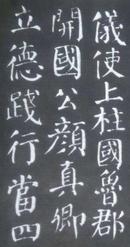 儀使上柱國魯郡
開國公顏真卿
立德踐行當四